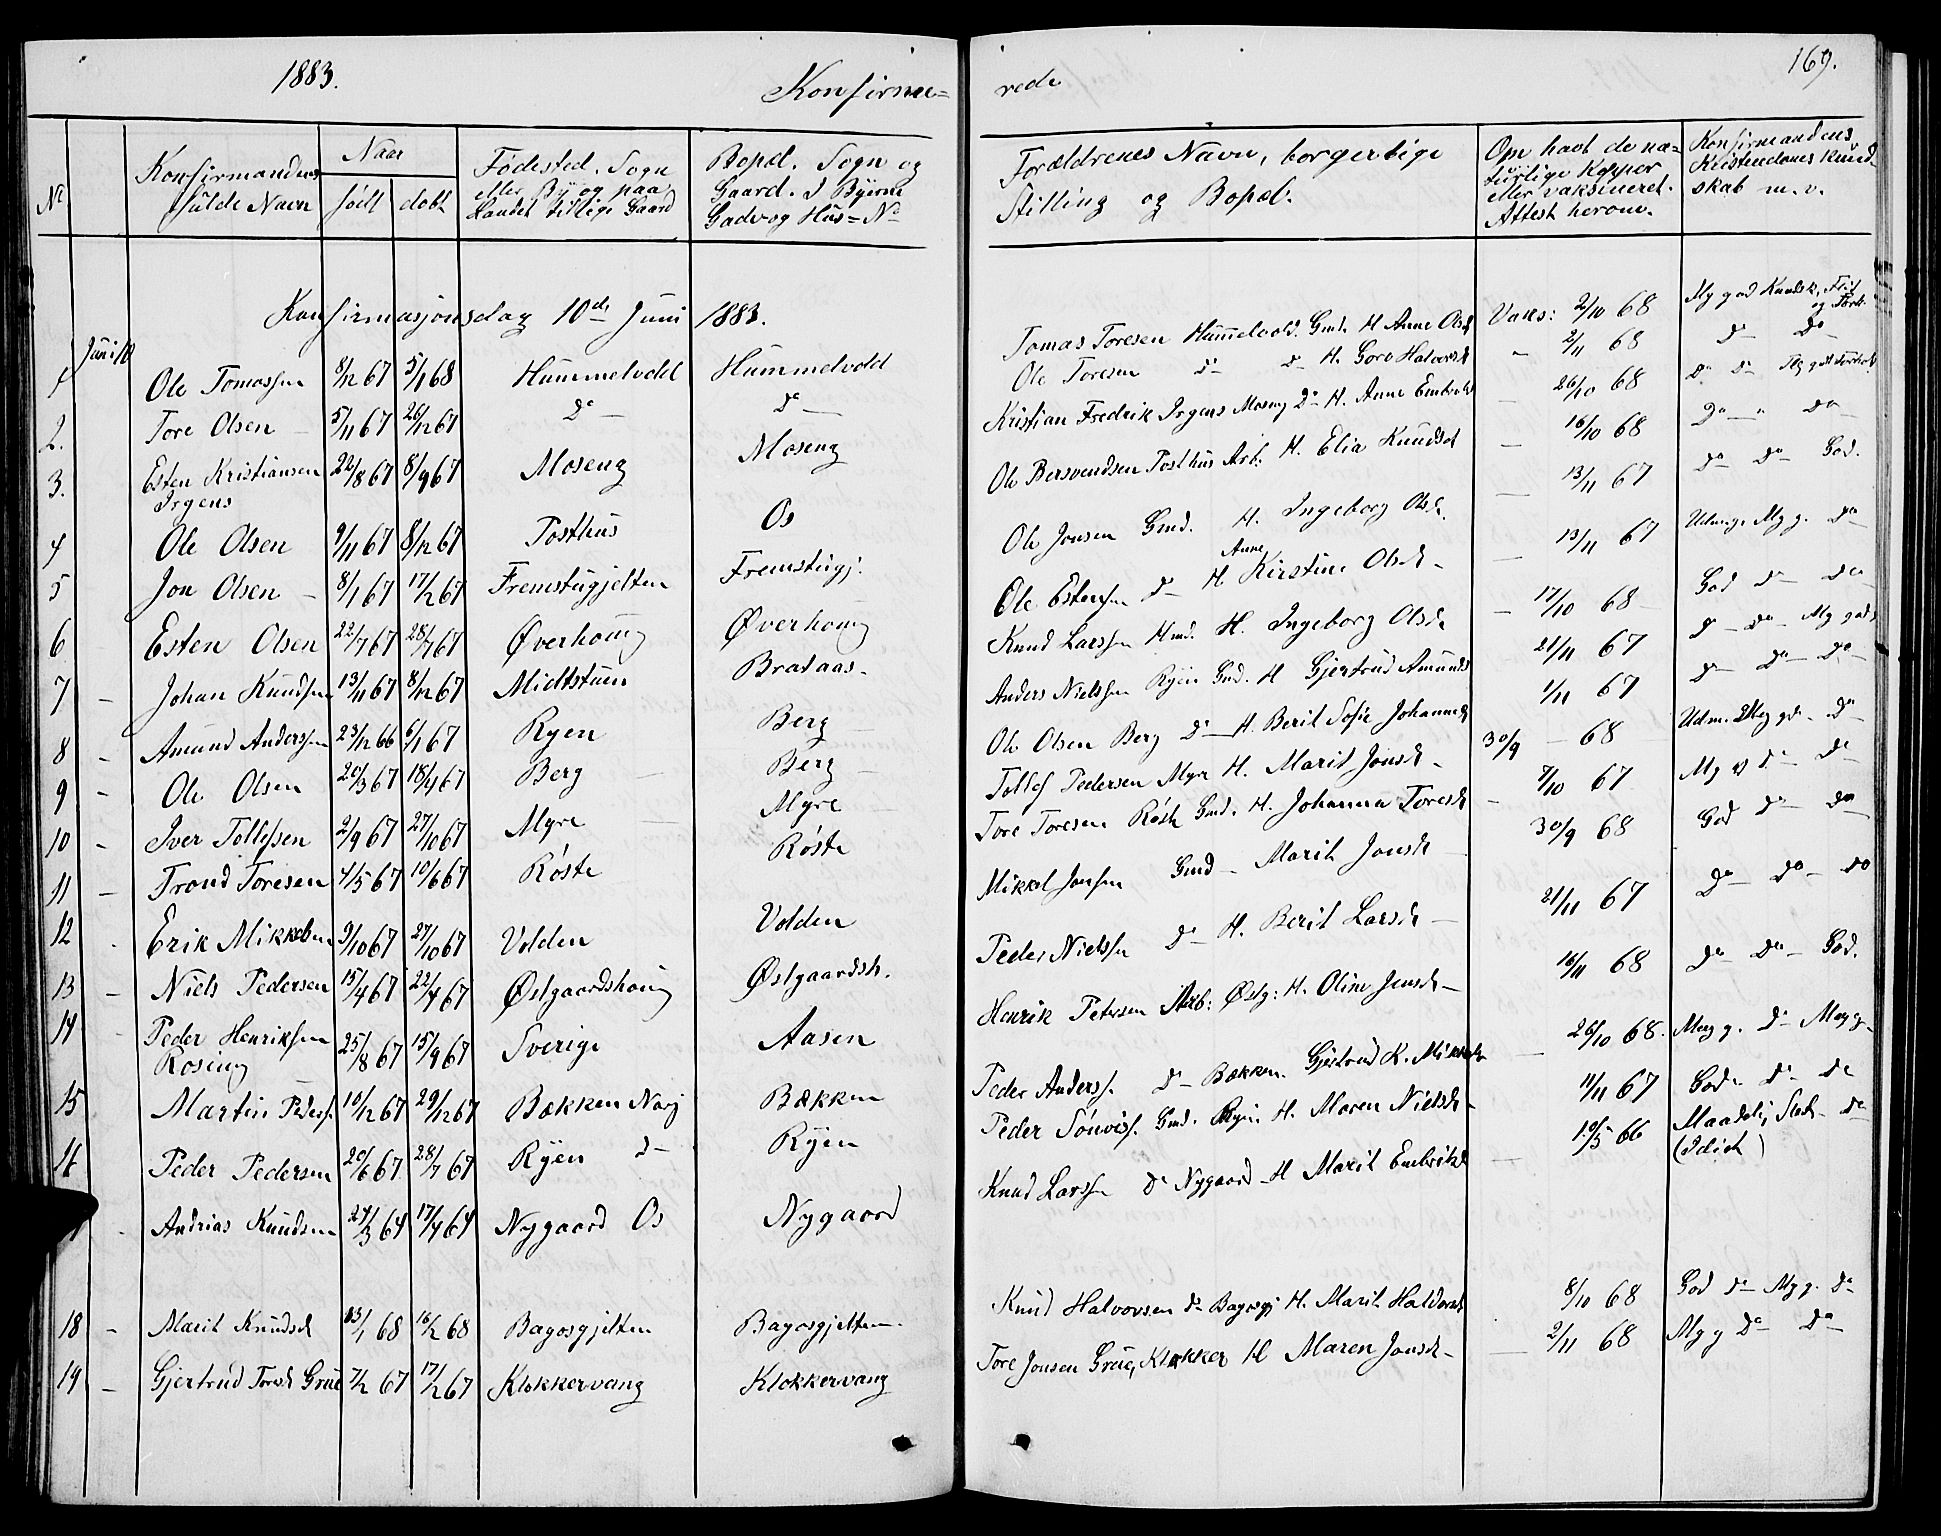 1883.
Konfirme=
rede
169.
No
Konfirmandens
fulde Navn
Naar
født
døbt
Fødested. Sogn
eller By og paa
Landet tillige Gaard
Bopæl. Sogn og
Gaard. I Byerne
Gade og Hus=No
Forældrenes Navn, borgerlige
Stilling og Bopæl.
Om havt de na=
turlige Kopper
eller vaksineret.
Attest herom.
Konfirmandens
Kristendoms kund
skab m. v.
Konfirmasjonsdag 10de Juni 1883.
Juni 10
1 Ole Tomassen 8/12 67 5/1 68 Hummelvold Hummelvold Tomas Toresen Hummelvold. Gmd. H Anne Olsd Vaks: 2/10 68 Mg god Kundsk, Flif og Forh.
2. Tore Olsen – 5/11 67 26/12 67 do – do – Ole Toresen do do H. Goro Halvorsd – 2/11 68 do – do –
3. Esten Kristiansen Irgens 22/8 67 8/9 67 Moseng Moseng Kristian Fredrik Irgens Moseng do H. Anne Embretsd – 26/10 68 do do Mg godt Forhold
4 Ole Olsen 9/11 67 8/12 67 Posthus Os Ole Bersvendsen Posthus Arb. H. Elia Knudsd – 16/10 68 do – " do –
5 Jon Olsen – 8/1 67 17/2 67 Fremstugjelten Fremstugj. Ole Jonsen Gmd. H. Ingeborg Olsd. – 13/11 67 do – do – God.
6 Esten Olsen 22/7 67 28/7 67 Øverhoug Øverhoug Ole Estensen do – H. Anne Kirstine Olsd – – 13/11 67 Udm. g. Mg g. do –
7 – Johan Knudsen 13/11 67 8/12 67 Midtstuen Brataas. Knud Larssen Hmd. H. Ingeborg Olsd. – 17/10 68 – God do – do –
8 – Amund Anderssen 23/12 66 6/1 67 Ryen Berg Anders Nielssen Ryen Gmd. H Gjertrud Amunds – 21/11 67 do – do – Mg godt
9 – Ole Olsen 20/3 67 18/4 67 Berg – Berg – Ole Olsen Berg do – H. Berit Sofie Johannesd 1/11 67 do – do – do –
10 – Iver Tollefsen 2/9 67 27/10 67 Myre – Myre Tollef Pedersen Myre H. Marit Jonsd – 30/9 – 68 Udm. Meg gd. – do –
11 – Trond Toresen 4/5 67 10/6 67 Røste Røste Tore Toresen Røst Gmd. H. Johanna Toresd – 7/10 67 Mg g do – do –
12 Erik Mikkelsen 9/10 67 27/10 67 Volden Volden Mikkel Jonsen Gmd – Marit Jonsd – 30/9 68 God do – do –
13 – Niels Pedersen 15/4 67 22/4 67 Østgaardshoug Østgaardsh. Peder Nielssen do – H. Berit Larsd – 21/11 67 do – do – do
14 Peder Henriksen Rosing 25/8 67 15/9 67 Sverige Aasen Henrik Petersen Arb: Østg: H. Oline Jensd – 16/11 68 do – do – God.
15 Martin Peders. 10/12 67 29/12 67 Bækken Narj Bækken Peder Anderss. do – Bækken. Gjertrud K. Mikkelsd – 26/10 68. Meg g. do – Meg g –
16 Peder Pedersen 20/6 67 28/7 67 Ryen do – Ryen Peder Sønviss. Gmd. Ryen H. Maren Nielsd – 11/11 67 God. do – do
Andrias Knudsen 24/3 64 17/4 64 Nygaard Os Nygaard Knud Larssen do Nygaard – H Marit Embrikd – 10/5 66 Maadelig Slet – do (Idiot)
18 – Marit Knudsd 03/1 68 16/2 68 Bagosgjelten Bagosgjelten. Knud Halvorsen do Bagosgj H. Marit Haldorsd 8/10 68 God do – Mg g. do –
19 – Gjertrud Toresd Grue 7/2 67 17/2 67 Klokkervang Klokkervang Tore Jonsen Grue, Klokker H Maren Jonsd – – 2/11 68 Mg g do – do –